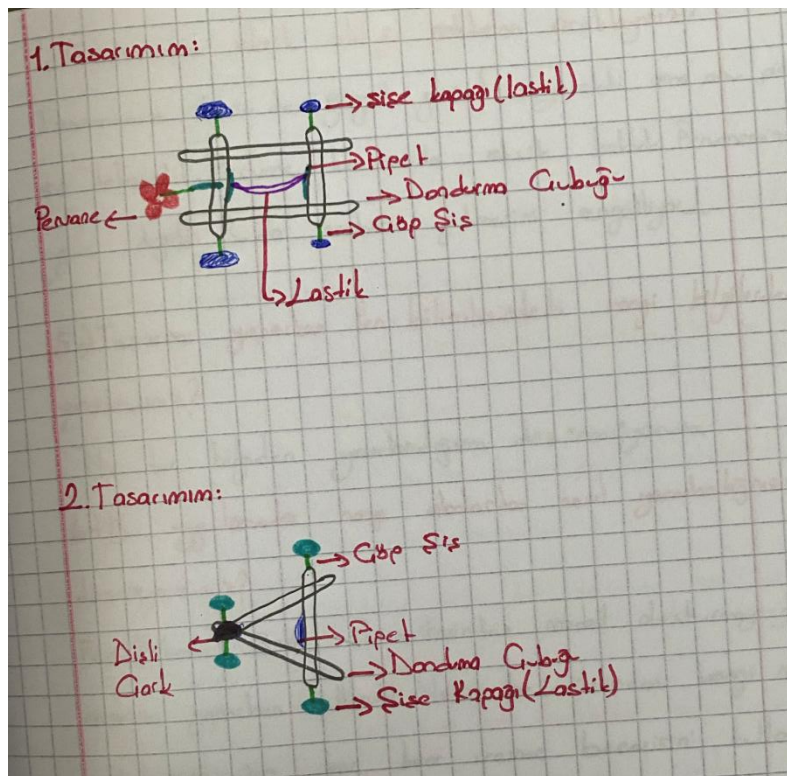 1. Tasarımım:
şişe kapağı (lastik)
Pipet
Dondurma Çubuğu
Çöp Şiş
Pervane
Lastik
2. Tasarımım:
Çöp Şiş
Pipet
Dişli
Çark
Dondurma Çubuğu
Şişe Kapağı (Lastik)